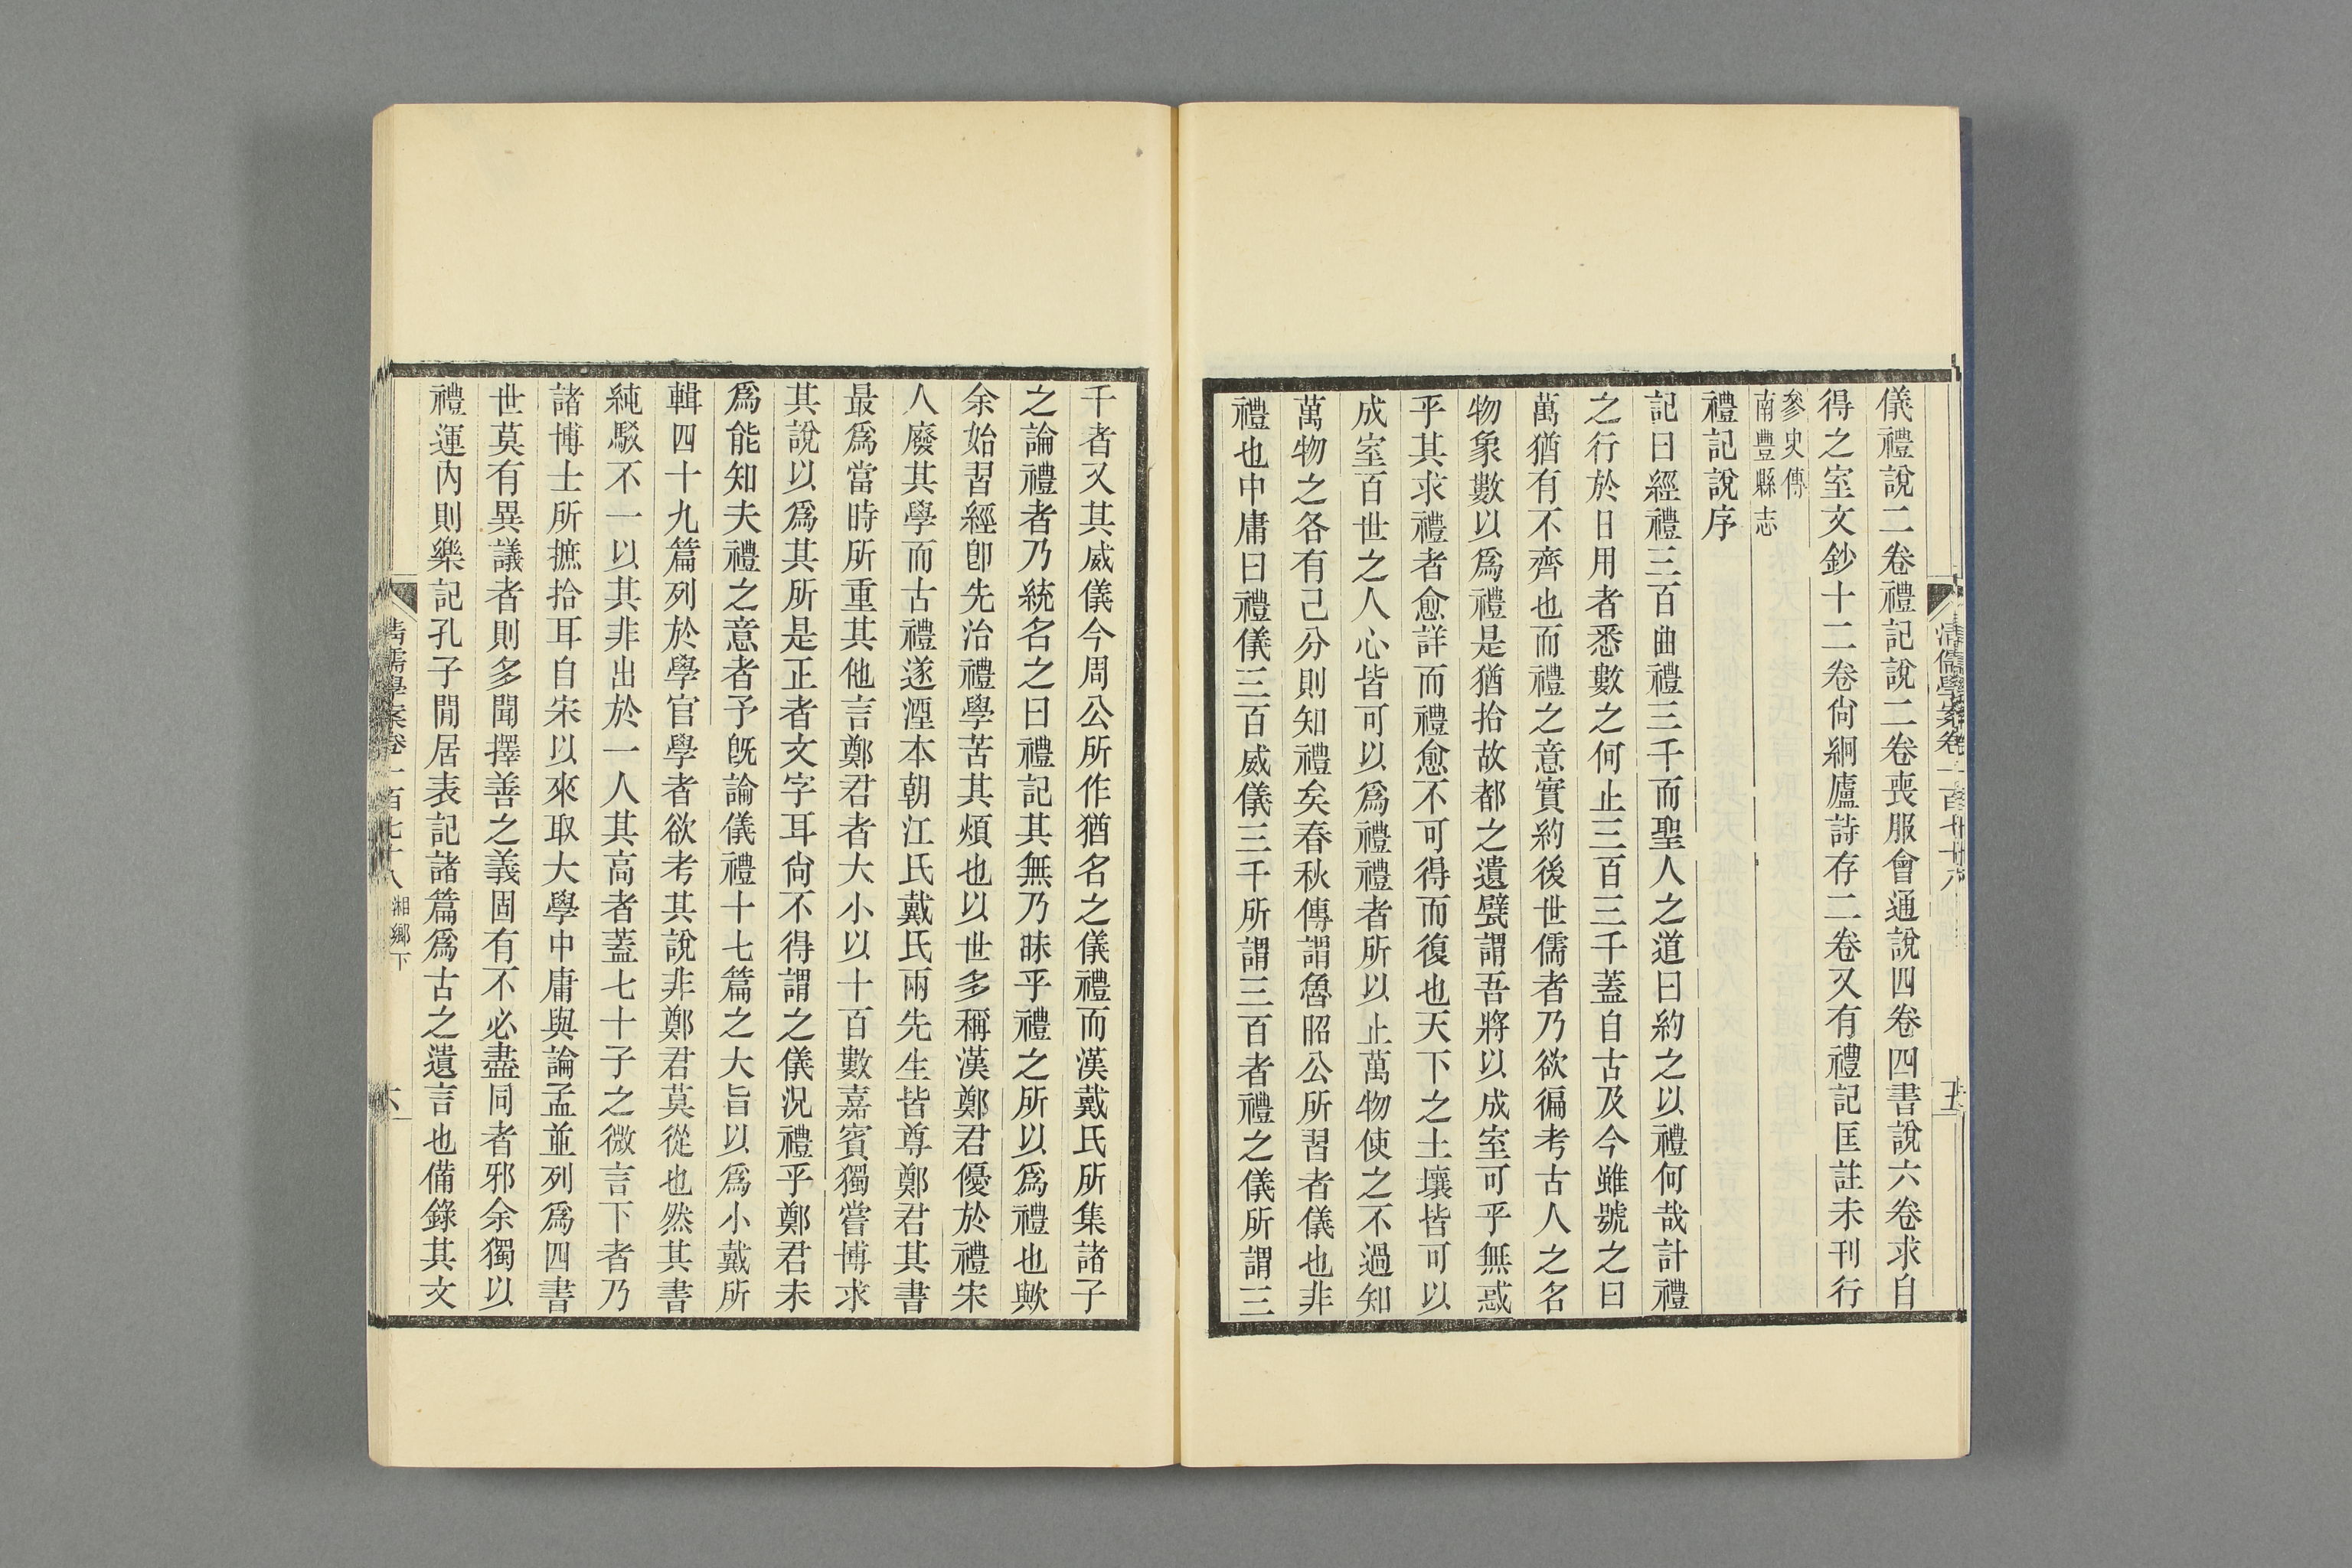 儀禮說二卷禮記說二卷喪服會通說四卷四書說六卷求自
得之室文鈔十二卷尙絅廬詩存二卷又有禮記匡註未刊行
參史傳
南豐縣志
禮記說序
記曰經禮三百曲禮三千而聖人之道曰約之以禮何哉計禮
之行於日用者悉數之何止三百三千蓋自古及今雖號之曰
萬猶有不齊也而禮之意實約後世儒者乃欲徧考古人之名
物象數以爲禮是猶拾故都之遺甓謂吾將以成室可乎無惑
乎其求禮者愈詳而禮愈不可得而復也天下之土壤皆可以
成室百世之人心皆可以爲禮禮者所以止萬物使之不過知
萬物之各有己分則知禮矣春秋傳謂魯昭公所習者儀也非
禮也中庸曰禮儀三百威儀三千所謂三百者禮之儀所謂三
清儒學案卷一百七十八
五
千者又其威儀今周公所作猶名之儀禮而漢戴氏所集諸子
之論禮者乃統名之曰禮記其無乃昧乎禮之所以爲禮也歟
余始習經卽先治禮學苦其煩也以世多稱漢鄭君優於禮宋
人廢其學而古禮遂湮本朝江氏戴氏兩先生皆尊鄭君其書
最爲當時所重其他言鄭君者大小以十百數嘉賓獨嘗博求
其說以爲其所是正者文字耳尙不得謂之儀況禮乎鄭君未
爲能知夫禮之意者予旣論儀禮十七篇之大旨以爲小戴所
輯四十九篇列於學官學者欲考其說非鄭君莫從也然其書
純駁不一以其非出於一人其高者蓋七十子之微言下者乃
諸博士所摭拾耳自宋以來取大學中庸與論孟並列爲四書
世莫有異議者則多聞擇善之義固有不必盡同者邪余獨以
禮運內則樂記孔子閒居表記諸篇爲古之遺言也備錄其文
清儒學案卷一百七十八 湘鄉下
六